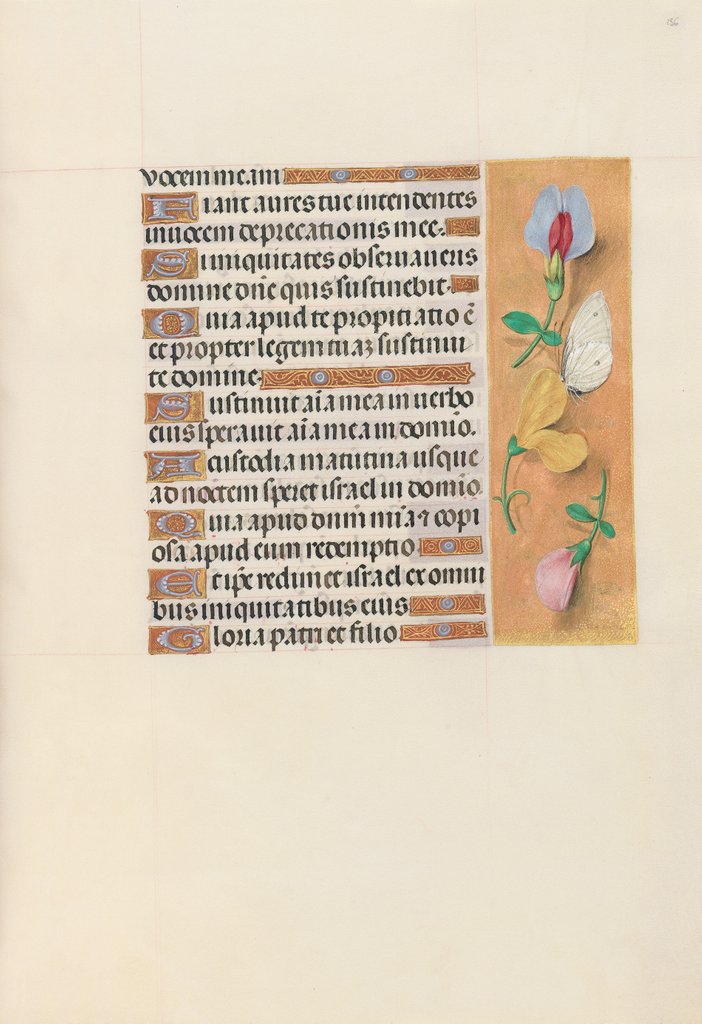 156
vocem meam
Fiant aures tue intendentes
in vocem deprecationis mee.
Si iniquitates observaveris
domine dñe quis sustinebit.
Quia apud te propitiatio ẽ
et propter legem tuaꝫ sustinui
te domine.
Sustinuit aĩa mea in verbo
eius speravit aĩa mea in domio.
A custodia matutina usque
ad noctem speret israel in domio.
Quia apud dnm mĩa ⁊ copi
osa apud eum redemptio
Et ipẽ redimet israel ex omni
bus iniquitatibus eius
Gloria patri et filio